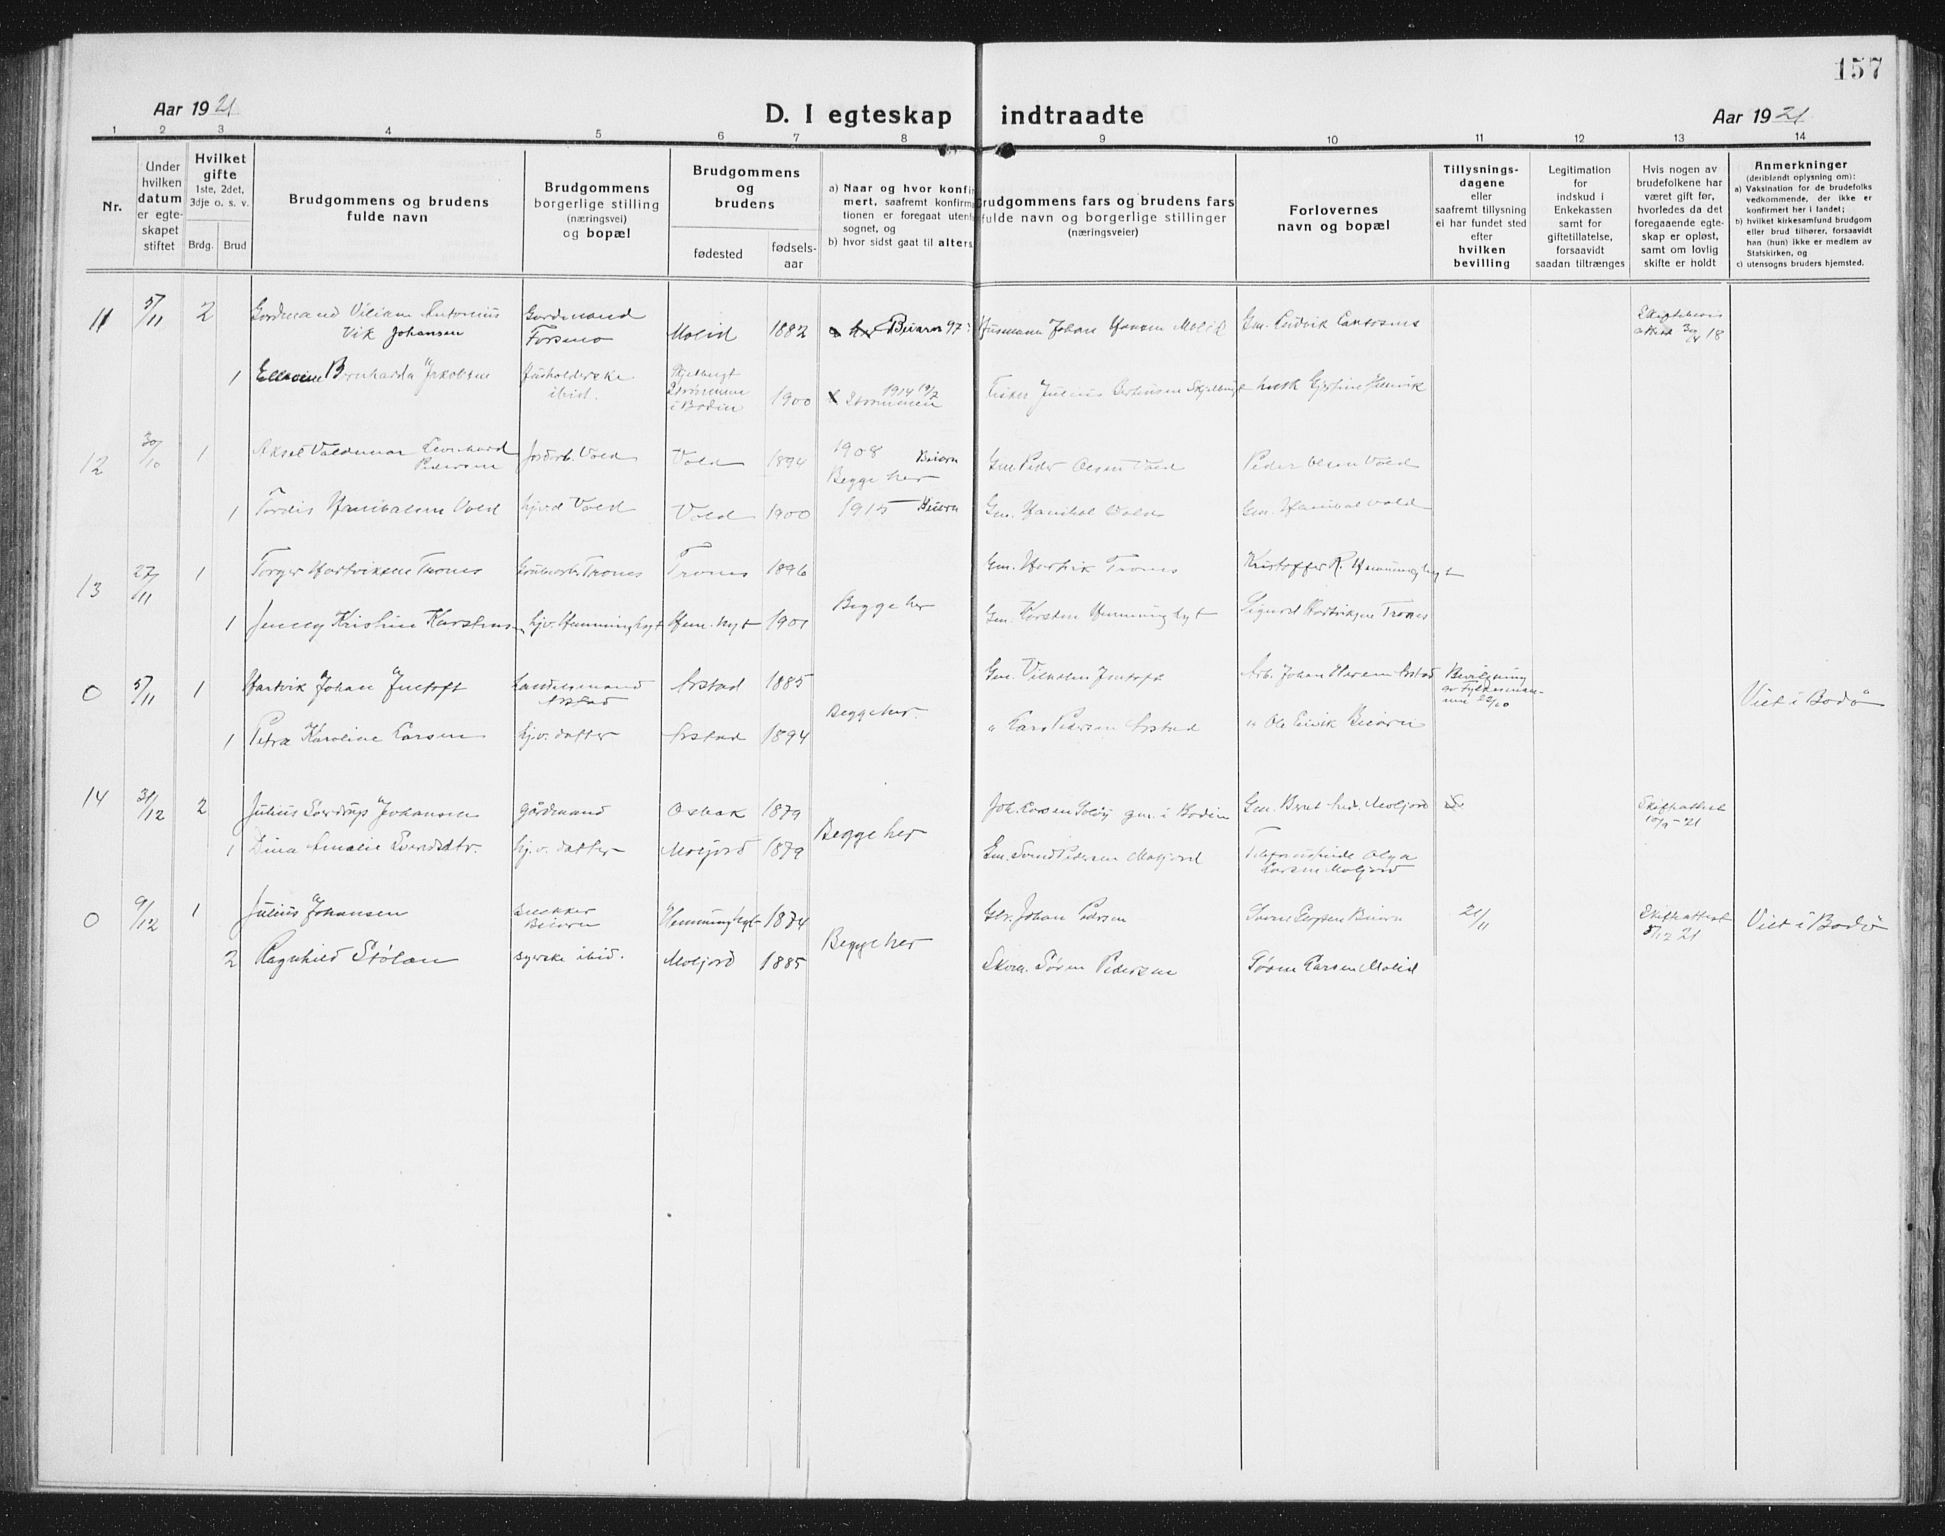 157
Aar 1921
D. I egteskap indtraadte
Aar 1921
1 2 3 4 5 6 7 8 9 10 11 12 13 14
Nr.
Under hvilken datum er egteskapet stiftet
Hvilket gifte 1ste, 2det, 3dje o. s. v.
Brdg. Brud
Brudgommens og brudens fulde navn
Brudgommens borgerlige stilling (næringsvei) og bopæl
Brudgommens og brudens
fødested
fødselsaar
a) Naar og hvor konfirmert, saafremt konfirmationen er foregaat utenfor sognet, og
b) hvor sidst gaat til alters
Brudgommens fars og brudens fars fulde navn og borgerlige stillinger (næringsveier)
Forlovernes navn og bopæl
Tillysningsdagene eller saafremt tillysning ei har fundet sted efter hvilken bevilling
Legitimation for indskud i Enkekassen samt for giftetillatelse, forsaavidt saadan tiltrænges
Hvis nogen av brudefolkene har været gift før, hvorledes da det foregaaende egteskap er opløst, samt om lovlig skifte er holdt
Anmerkninger (deriblandt oplysning om):
a) Vaksination for de brudefolks vedkommende, der ikke er konfirmert her i landet;
b) hvilket kirkesamfund brudgom eller brud tilhører, forsaavidt han (hun) ikke er medlem av Statskirken, og
c) utensogns bruders hjemsted.
11 5/11 2 Gordmand Viliam Antonius Gordmand
Vik Johansen Forsmo Molid 1882 Beiarn 97 Husmann Johan Hansen Molid
30/4 18
1 Bernharda Jakobsen husholderske ibid. Skjelbugt Strømmen i Bodin 1900 1914 Strømmen Fisker Julius
12 30/10 1 Aksel Valdemar Leonhard Pedersen Jordbr. Vold Vold 1894 1908 Beiarn Gm. Peder Olsen Vold Peder Olsen Vold
Begge her
1 Tordis Hanibalsen Vold hjv.d Vold Vold 1900 1915 Beiarn Gm. Hanibal Vold Gm. Hanibal Vold
13 27/11 1 Torger Hartviksen Trones Trones Trones 1896 Gm. Hartvik Trones Kristoffer R. Hemminghyt
Begge her
1 Jenny Kristine Karstens hjv. Hemminghyt Hem. hyt 1901 Gm. Karsten Hemminghyt Sigurd Hartviksen Trones
0 5/11 1 Hartvik Johan Jentoft Handelsmand Arstad Arstad 1885 Gm. Vilhelm Jentoft Arb. Johan Arstad Bevilgning av Fylkesmannen 22/10
Begge her. Viet i Bodø
1 Petra Karoline Larsen hj.v. datter Arstad 1894 " Lars Pedersen Arstad " Ole Beiarn
14 31/12 2 Julius Sverdrup Johansen gårdmand Osbak 1879 Joh. Larsen Solöj gm. i Bodin Gm. Moljord Skifteattest 10/9-21
Begge her
1 Dina Amalie Svendsdtr. hj.v. datter Moljord 1879 Gm. Svend Pedersen Moljord Olga Larsen Moljord
0 9/12 1 Julius Johansen Beiarn Hemminghyt 1874 Gbr. Johan Pedersen Beiarn 21/11 Skifteattest 5/12 21 Viet i Bodø
Begge her
2 Ragnhild Stølan syerske ibid. Moljord 1885 Skom. Søren Pedersen Søren Larsen Molid